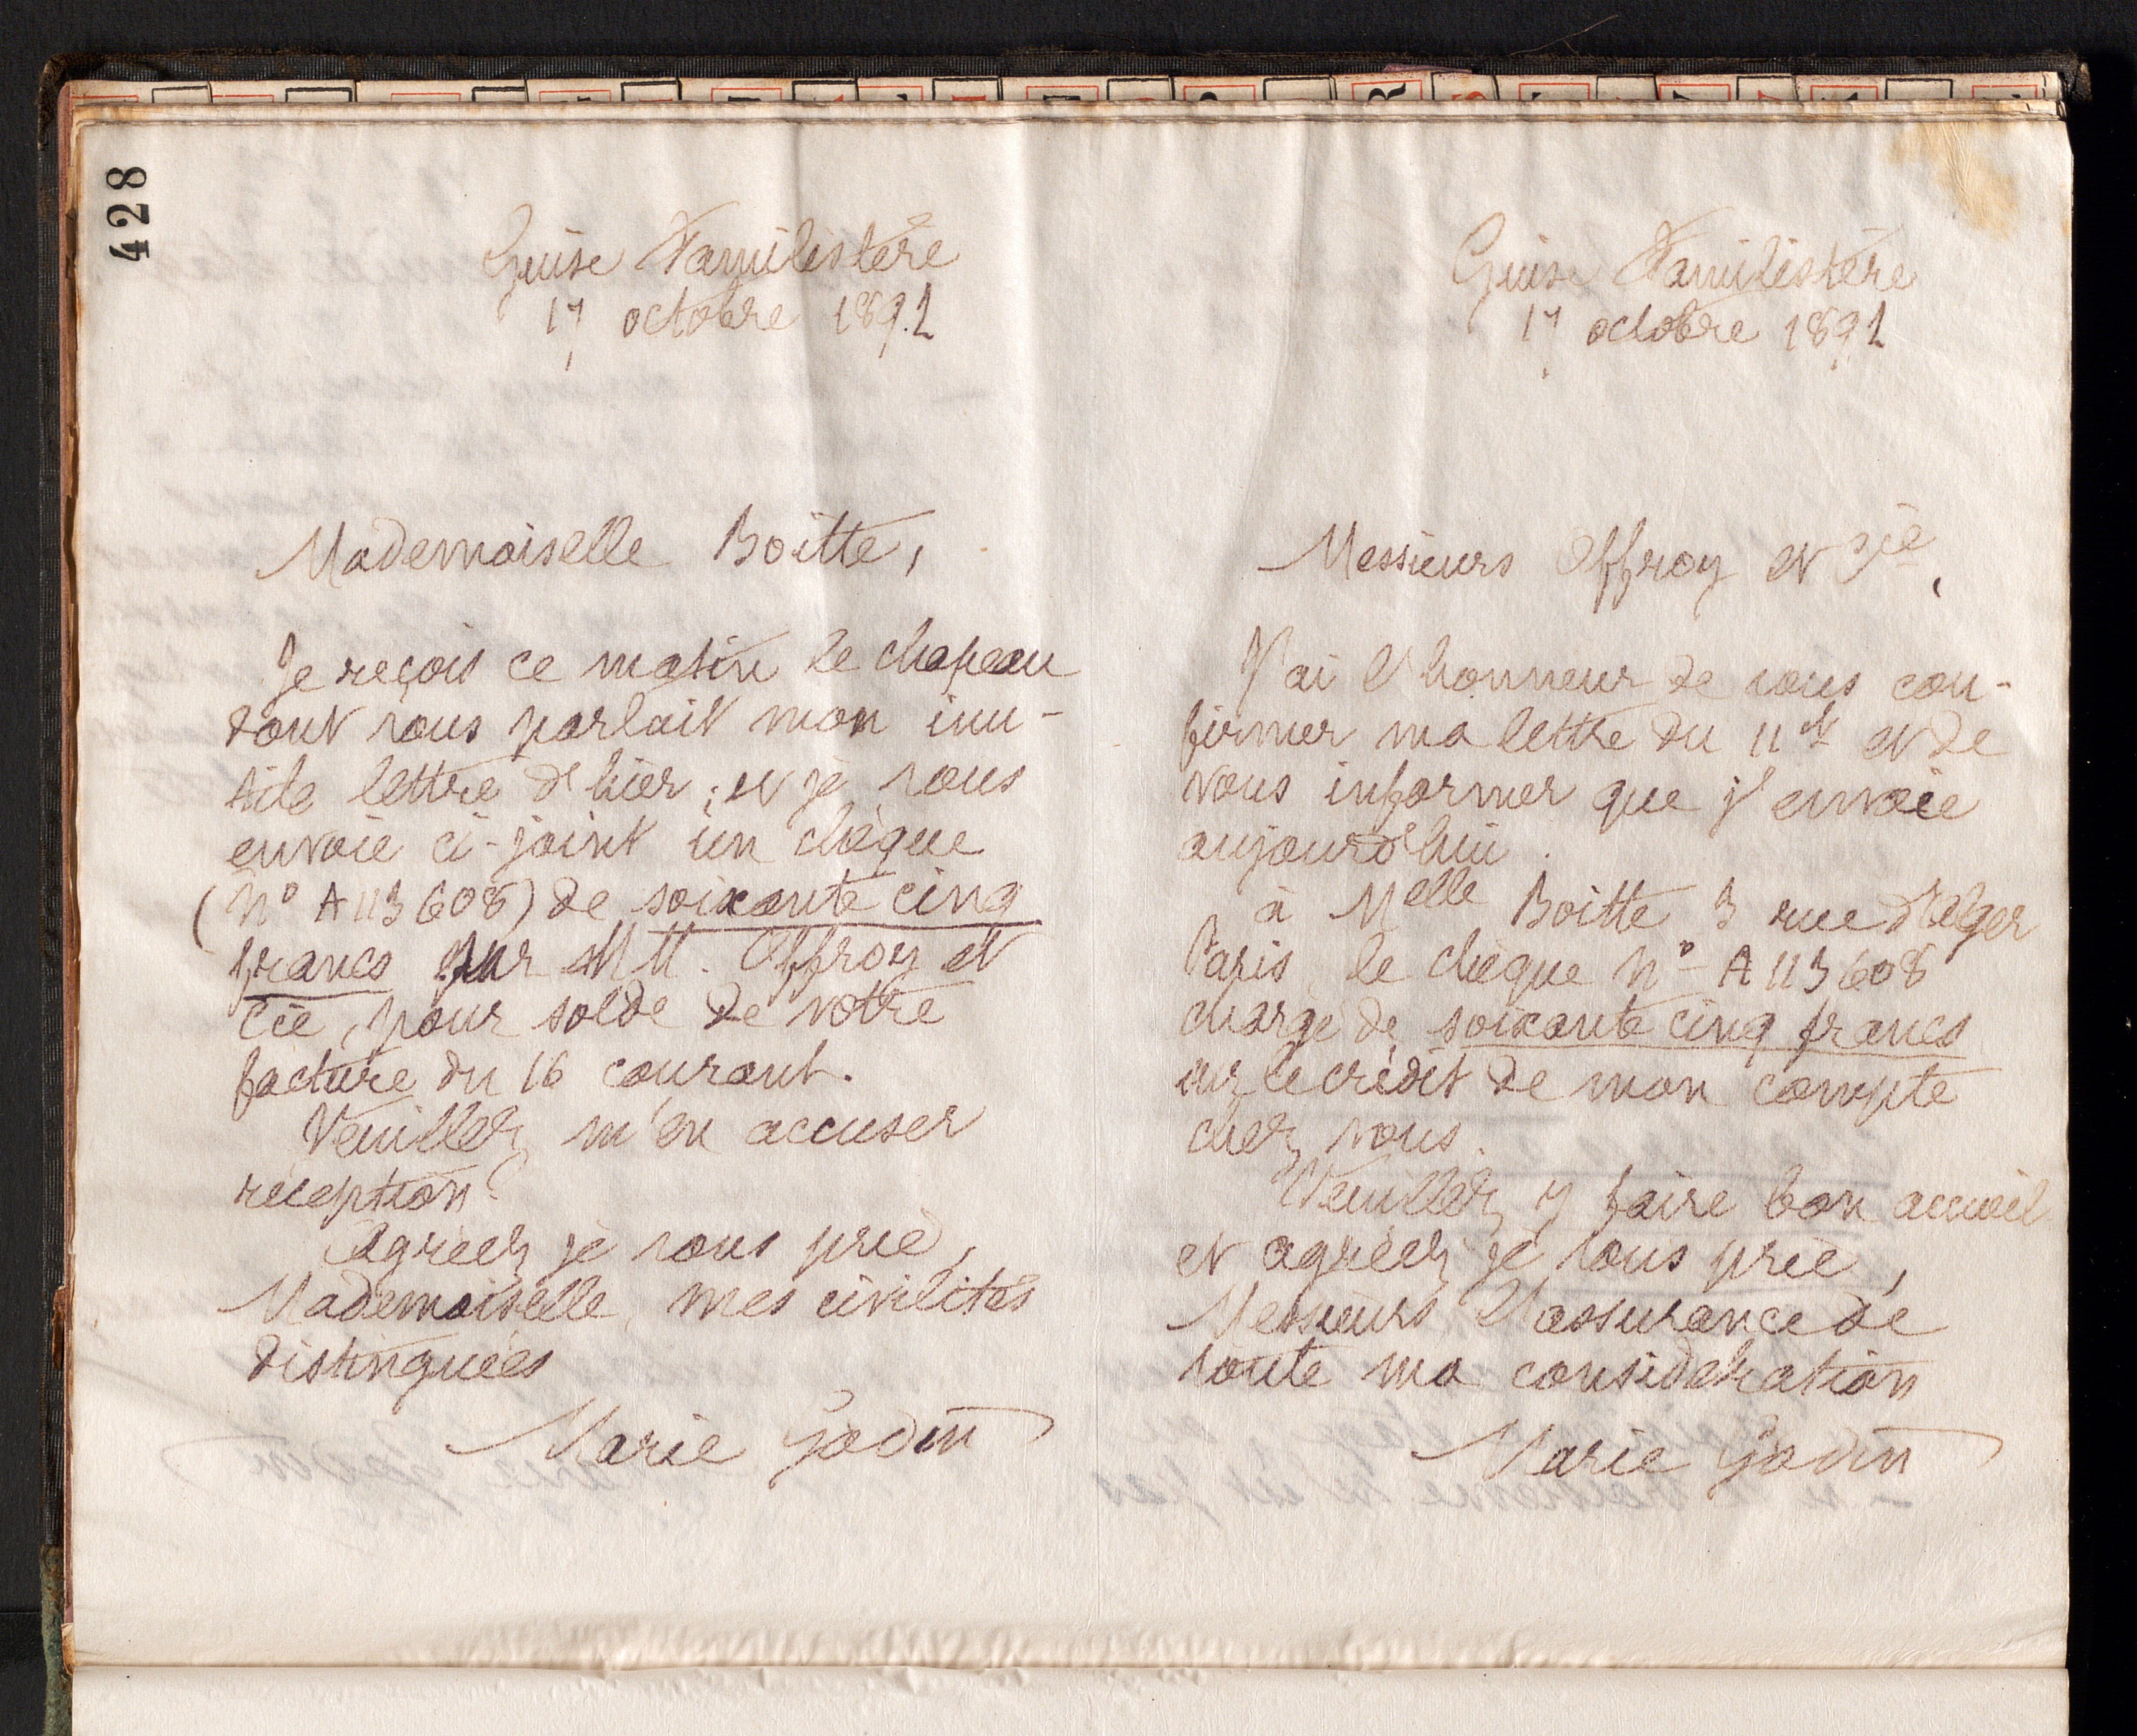 428
Guise Familistère
17 octobre 1892
Mademoiselle Boitte,
Je reçois ce matin le chapeau
dont vous parlait mon inu-
tile lettre d'hier ; et je vous
envoie ci-joint un chèque
(N° A 113 608) de soixante cinq
francs sur MM. Offroy et
Cie, pour solde de votre
facture du 16 courant.
Veuillez m'en accuser
réception.
Agréez je vous prie,
Mademoiselle, mes civilités
distinguées
Marie Godin
Guise Familistère
17 octobre 1892
Messieurs Offroy et Cie,
J'ai l'honneur de vous con-
firmer ma lettre du 11 ct et de
vous informer que j'envoie
aujourd'hui
à Melle Boitte 3 rue d'Alger
Paris, le chèque N° A 113 608
charge de soixante cinq francs
sur le crédit de mon compte
chez vous.
Veuillez y faire bon accueil
et agréez je vous prie,
Messieurs l'assurance de
toute ma considération
Marie Godin